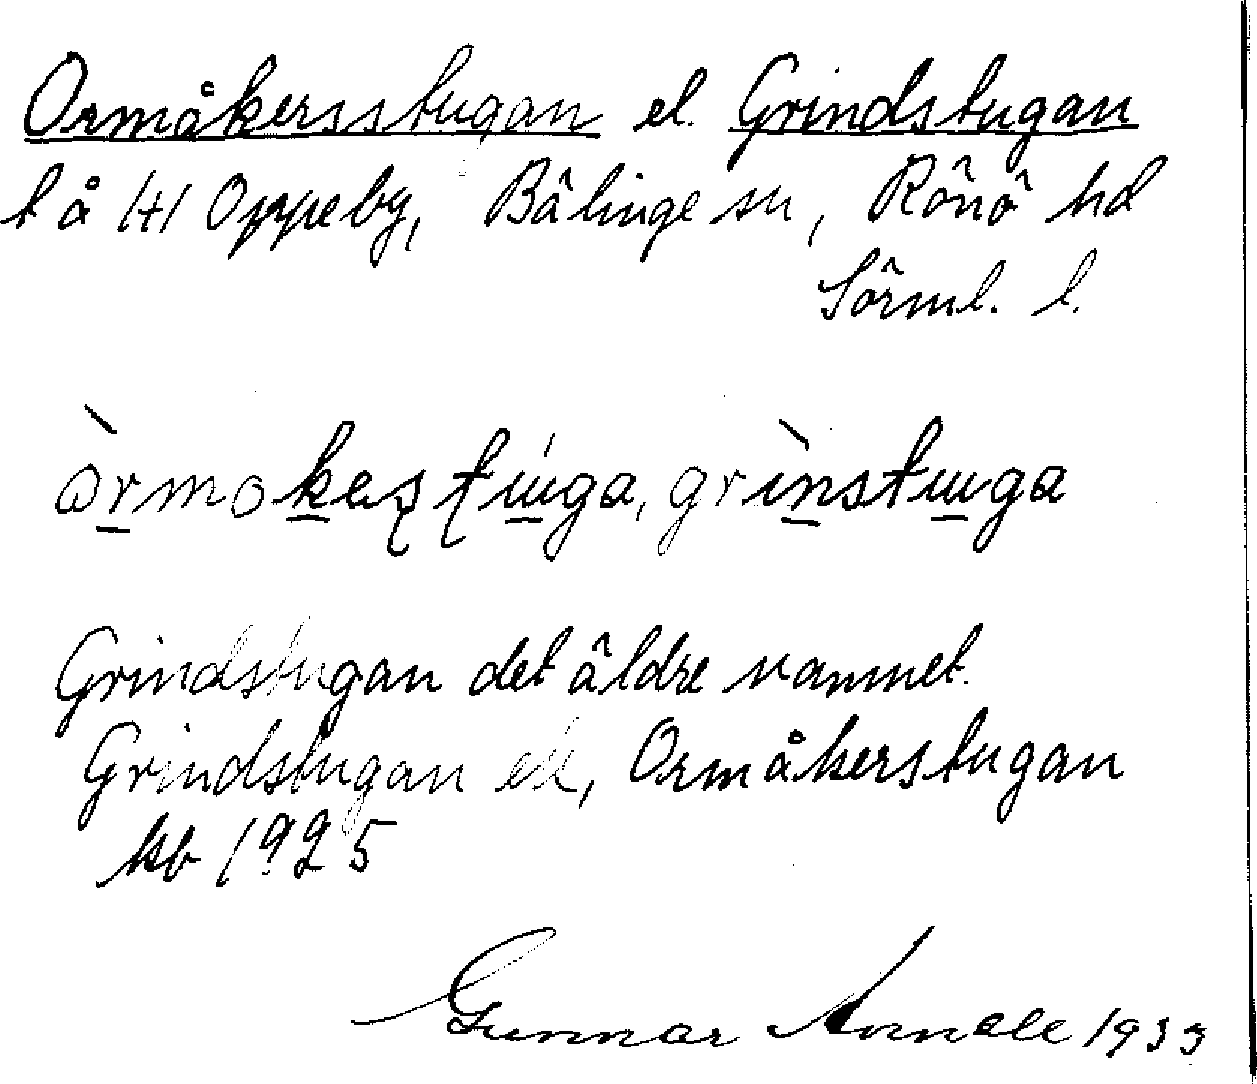 Ormåkersstugan el. Grindstugan
t å /+/ Oppeby, Bälinge sn, Rönö hd
Sörml. l.
òrmokesṭuga, grìnstuga
Grindstugan det äldre namnet.
Grindstugan ell, Ormåkerstugan
kb 1925
Gunnar 1933